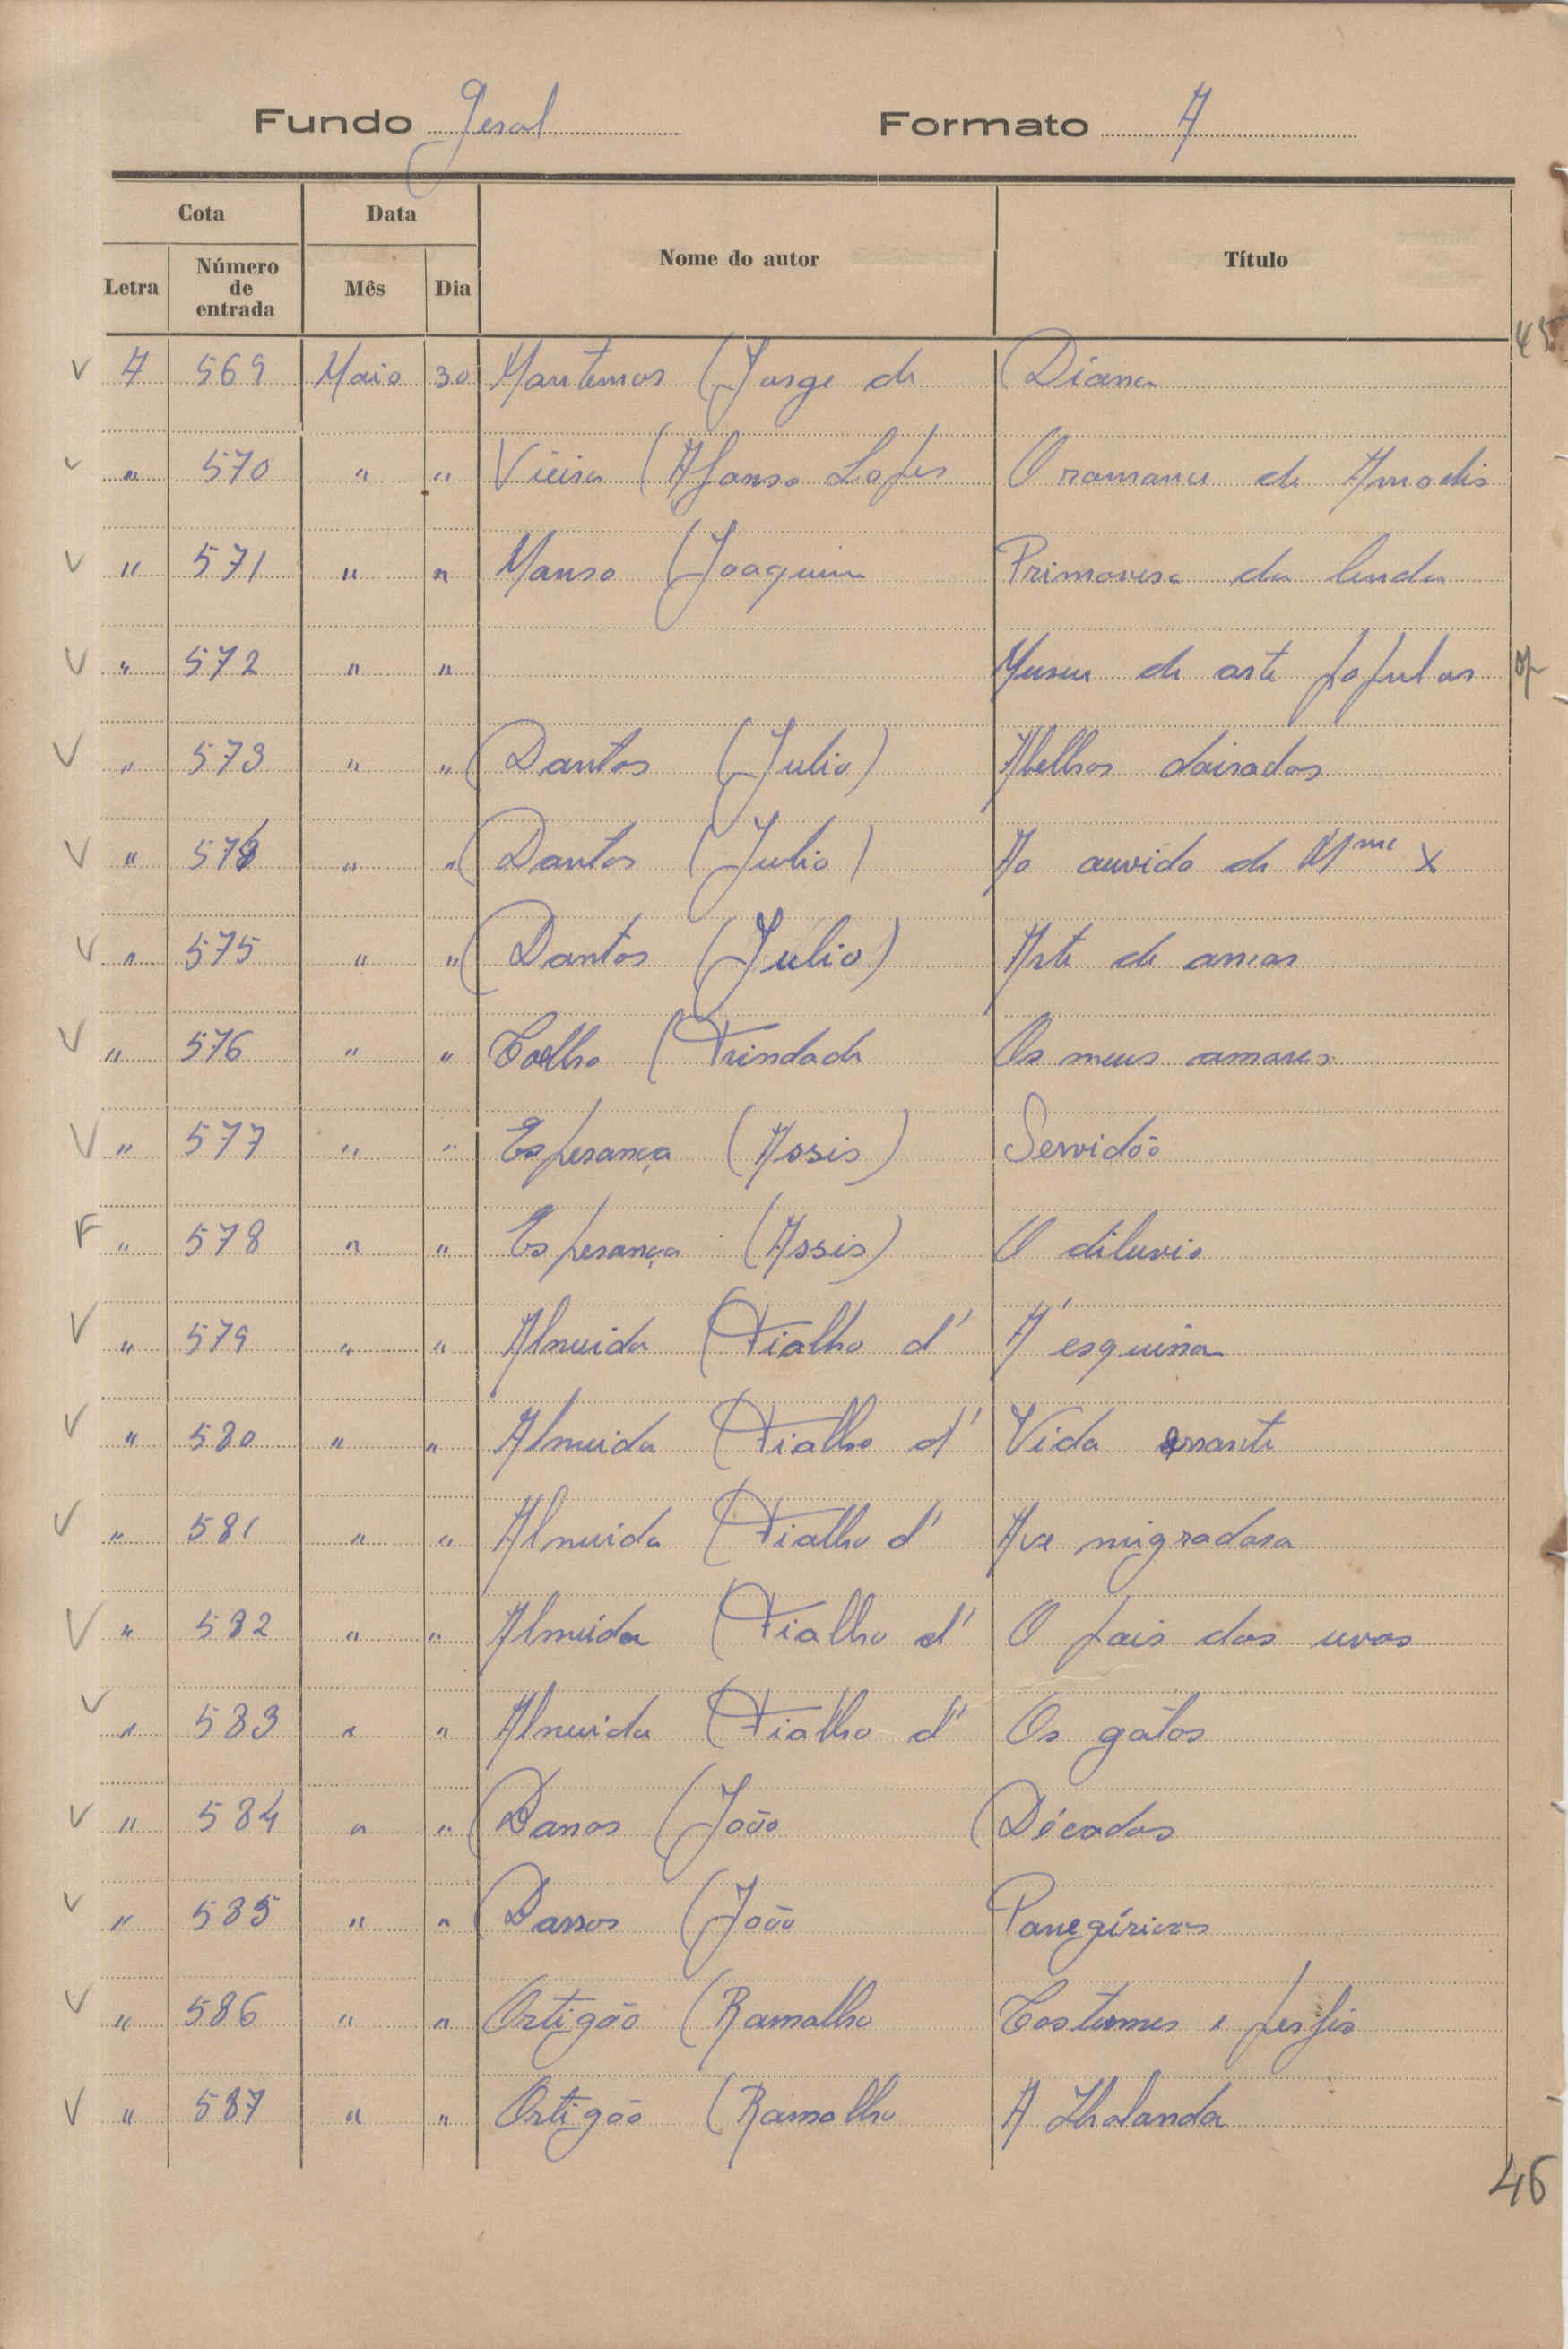 Fundo Geral Formato A
Cota Data Nome do autor Título
Letra Número de entrada Mês Dia
45
V A 569 Maio 30 Montemor (Jorge de Diana
V " 570 " " Vieira (Afonso Lopes O romance de Amadis
V " 571 " " Manso (Joaquim Primavera da lenda
V " 572 " " Museu de arte popular op
V " 573 " " Dantas (Julio) Abelhas doiradas
V " 574 " " Dantas (Julio) Ao ouvido de Mme X
V " 575 " " Dantas (Julio) Arte de amar
V " 576 " " Coelho (Trindade Os meus amores
V " 577 " " Esperança (Assis) Servidão
F " 578 " " Esperança (Assis) O diluvio
V " 579 " " Almeida (Fialho d' Á esquina
V " 580 " " Almeida (Fialho d' Vida errante
V " 581 " " Almeida (Fialho d' Ave migradora
V " 582 " " Almeida (Fialho d' O pais das uvas
V " 583 " " Almeida (Fialho d' Os gatos
V " 584 " " Barros (João Décadas
V " 585 " " Barros (João Panegíricos
V " 586 " " Ortigão (Ramalho Costumes e perfis
V " 587 " " Ortigão (Ramalho A Holanda
46